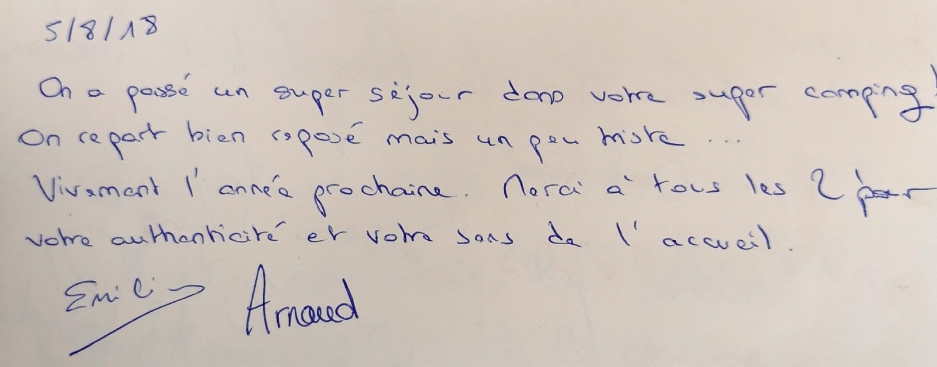 5/8/18
On a passé un super séjour dans votre super camping!
On repart bien reposé mais un peu triste ...
Vivement l'année prochaine. Merci à tous les 2 pour
votre authenticité et votre sens de l'accueil.
Arnaud